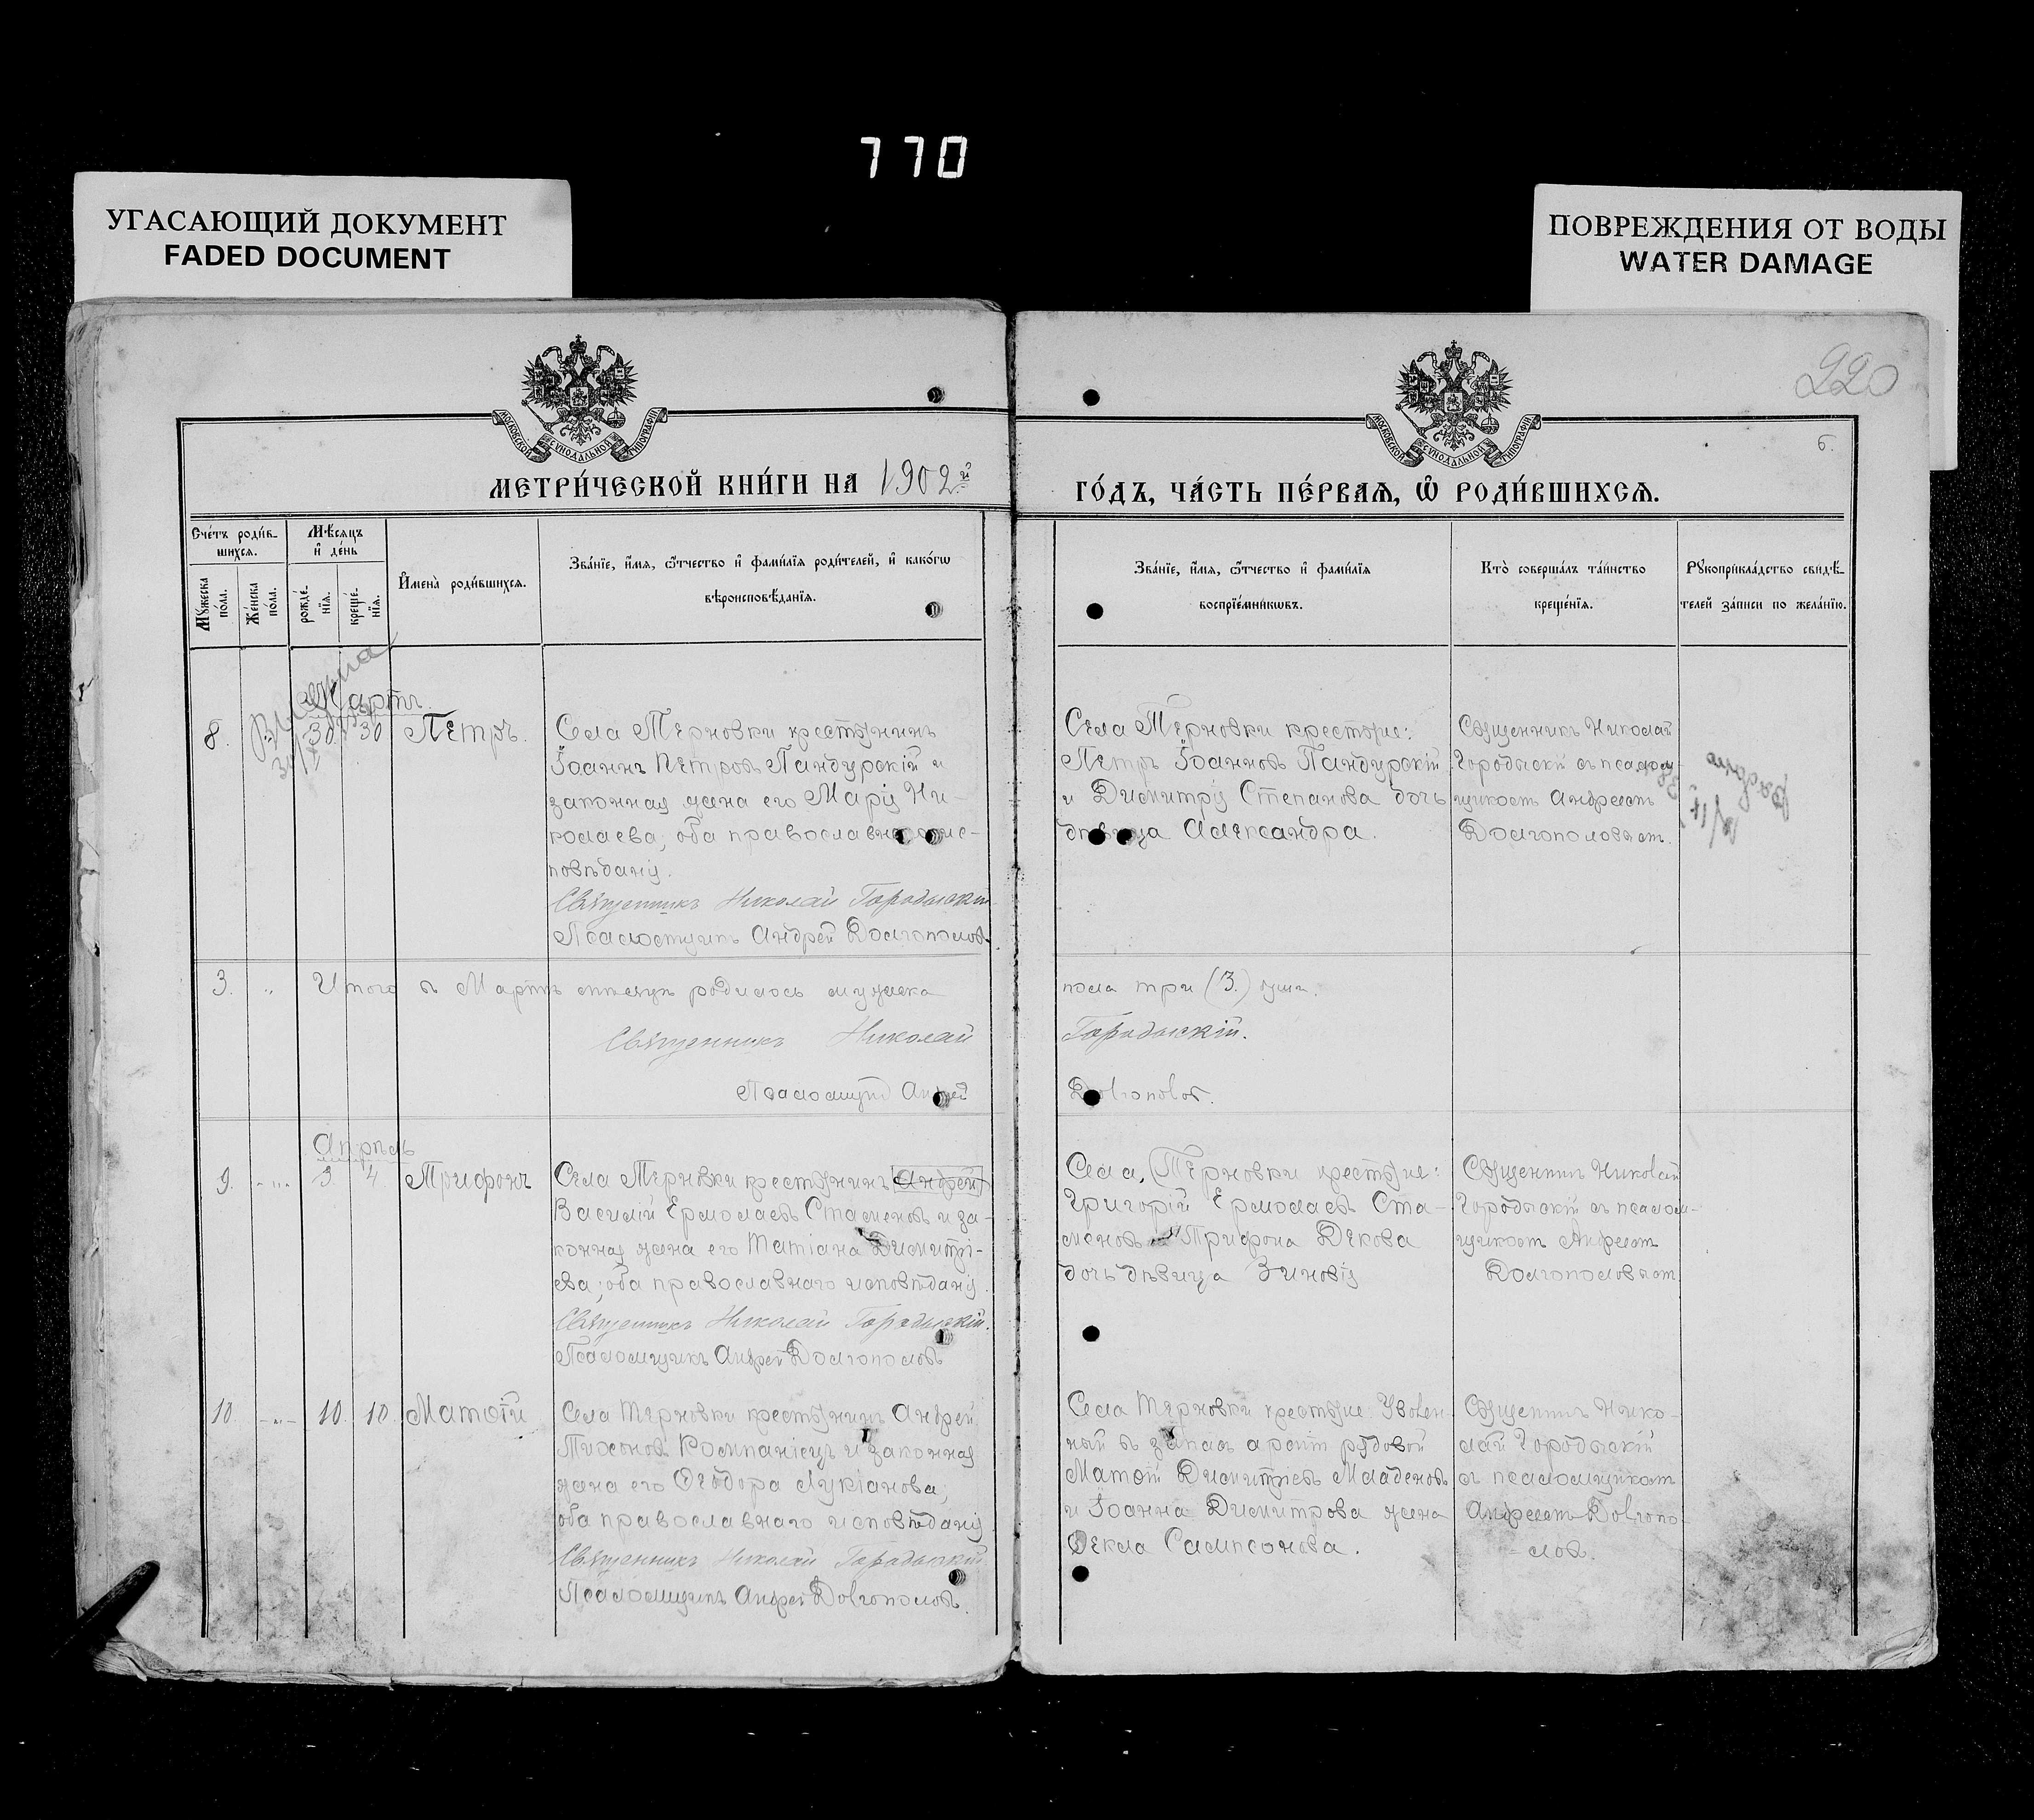 770
УГАСАЮЩИЙ ДОКУМЕНТ
FADED DOCUMENT
ПОВРЕЖДЕНИЯ ОТ ВОДЫ
WATER DAMAGE
220
6.
МОСКОВСКОЙ СѴНОДАЛЬНОЙ ТИПОГРАФІИ
МОСКОВСКОЙ СѴНОДАЛЬНОЙ ТИПОГРАФІИ
МЕТРИ́ЧЕСКОЙ КНИ́ГИ НА 1902й
ГО́ДЪ, ЧА́СТЬ ПЕ́РВАѦ, Ѿ РОДИ́ВШИХСѦ.
Сче́тъ роди́в-
шихся.
Мѣ́сяцъ
и де́нь
Мꙋ́жеска
по́ла.
Же́нска
по́ла.
рожде́-
нїя.
креще́-
нїя.
И҆мена̀ роди́вшихся.
Зва́нїе, и҆́мя, ѻ҆́тчество и҆ фами́лїя роди́телей, и҆ како́гѡ
вѣроисповѣ́данїя.
Зва́нїе, и҆́мя, ѻ҆́тчество и҆ фами́лїя
воспрїе́мникѡвъ.
Кто̀ соверша́лъ та́инство
креще́нїя.
Рꙋкоприкла́дство свидѣ́-
телей за́писи по жела́нїю.
Мартъ.
8. 30 30 Петръ.
Села Терновки крестьянинъ
Іоаннъ Петровъ Пандурскій и
законная жена его Марія Ни-
колаева; оба православнаго ис-
повѣданія.
Священникъ Николай Городыскій
Псаломщикъ Андрей Долгополовъ.
Села Терновки крестьяне:
Петръ Іоанновъ Пандурскій
и Димитрія Степанова дочь
дѣвица Александра.
Священникъ Николай
Городыскій съ псалом-
щикомъ Андреемъ
Долгополовымъ.
3. „ Итого въ Мартѣ мѣсяцѣ родилось мужеска
пола три (3.) души.
Священникъ Николай
Городыскій.
Псаломщикъ Андрей
Долгополовъ.
Апрѣль
9. „ 3 4. Трифонъ
Села Терновки крестьянинъ Андрей
Василій Ермолаевъ Стаменовъ и за-
конная жена его Татіана Димитрі-
ева; оба православнаго исповѣданія.
Священникъ Николай Городыскій.
Псаломщикъ Андрей Долгополовъ
Села Терновки крестьяне:
Григорій Ермолаевъ Ста-
меновъ и Трифона Декова
дочь дѣвица Зиновія
Священникъ Николай
Городыскій съ псалом-
щикомъ Андреемъ
Долгополовымъ.
10. „ 10. 10. Матѳій
Села Терновки крестьянинъ Андрей
Тихоновъ Компаніецъ и законная
жена его Ѳеодора Лукіанова;
оба православнаго исповѣданія
Священникъ Николай Городыскій.
Псаломщикъ Андрей Долгополовъ.
Села Терновки крестьяне: Уволен-
ный въ запасъ арміи рядовой
Матѳій Димитріевъ Младеновъ
и Іоанна Димитрова жена
Ѳекла Сампсонова.
Священникъ Нико-
лай Городыскій
съ псаломщикомъ
Андреемъ Долгопо-
ловъ.